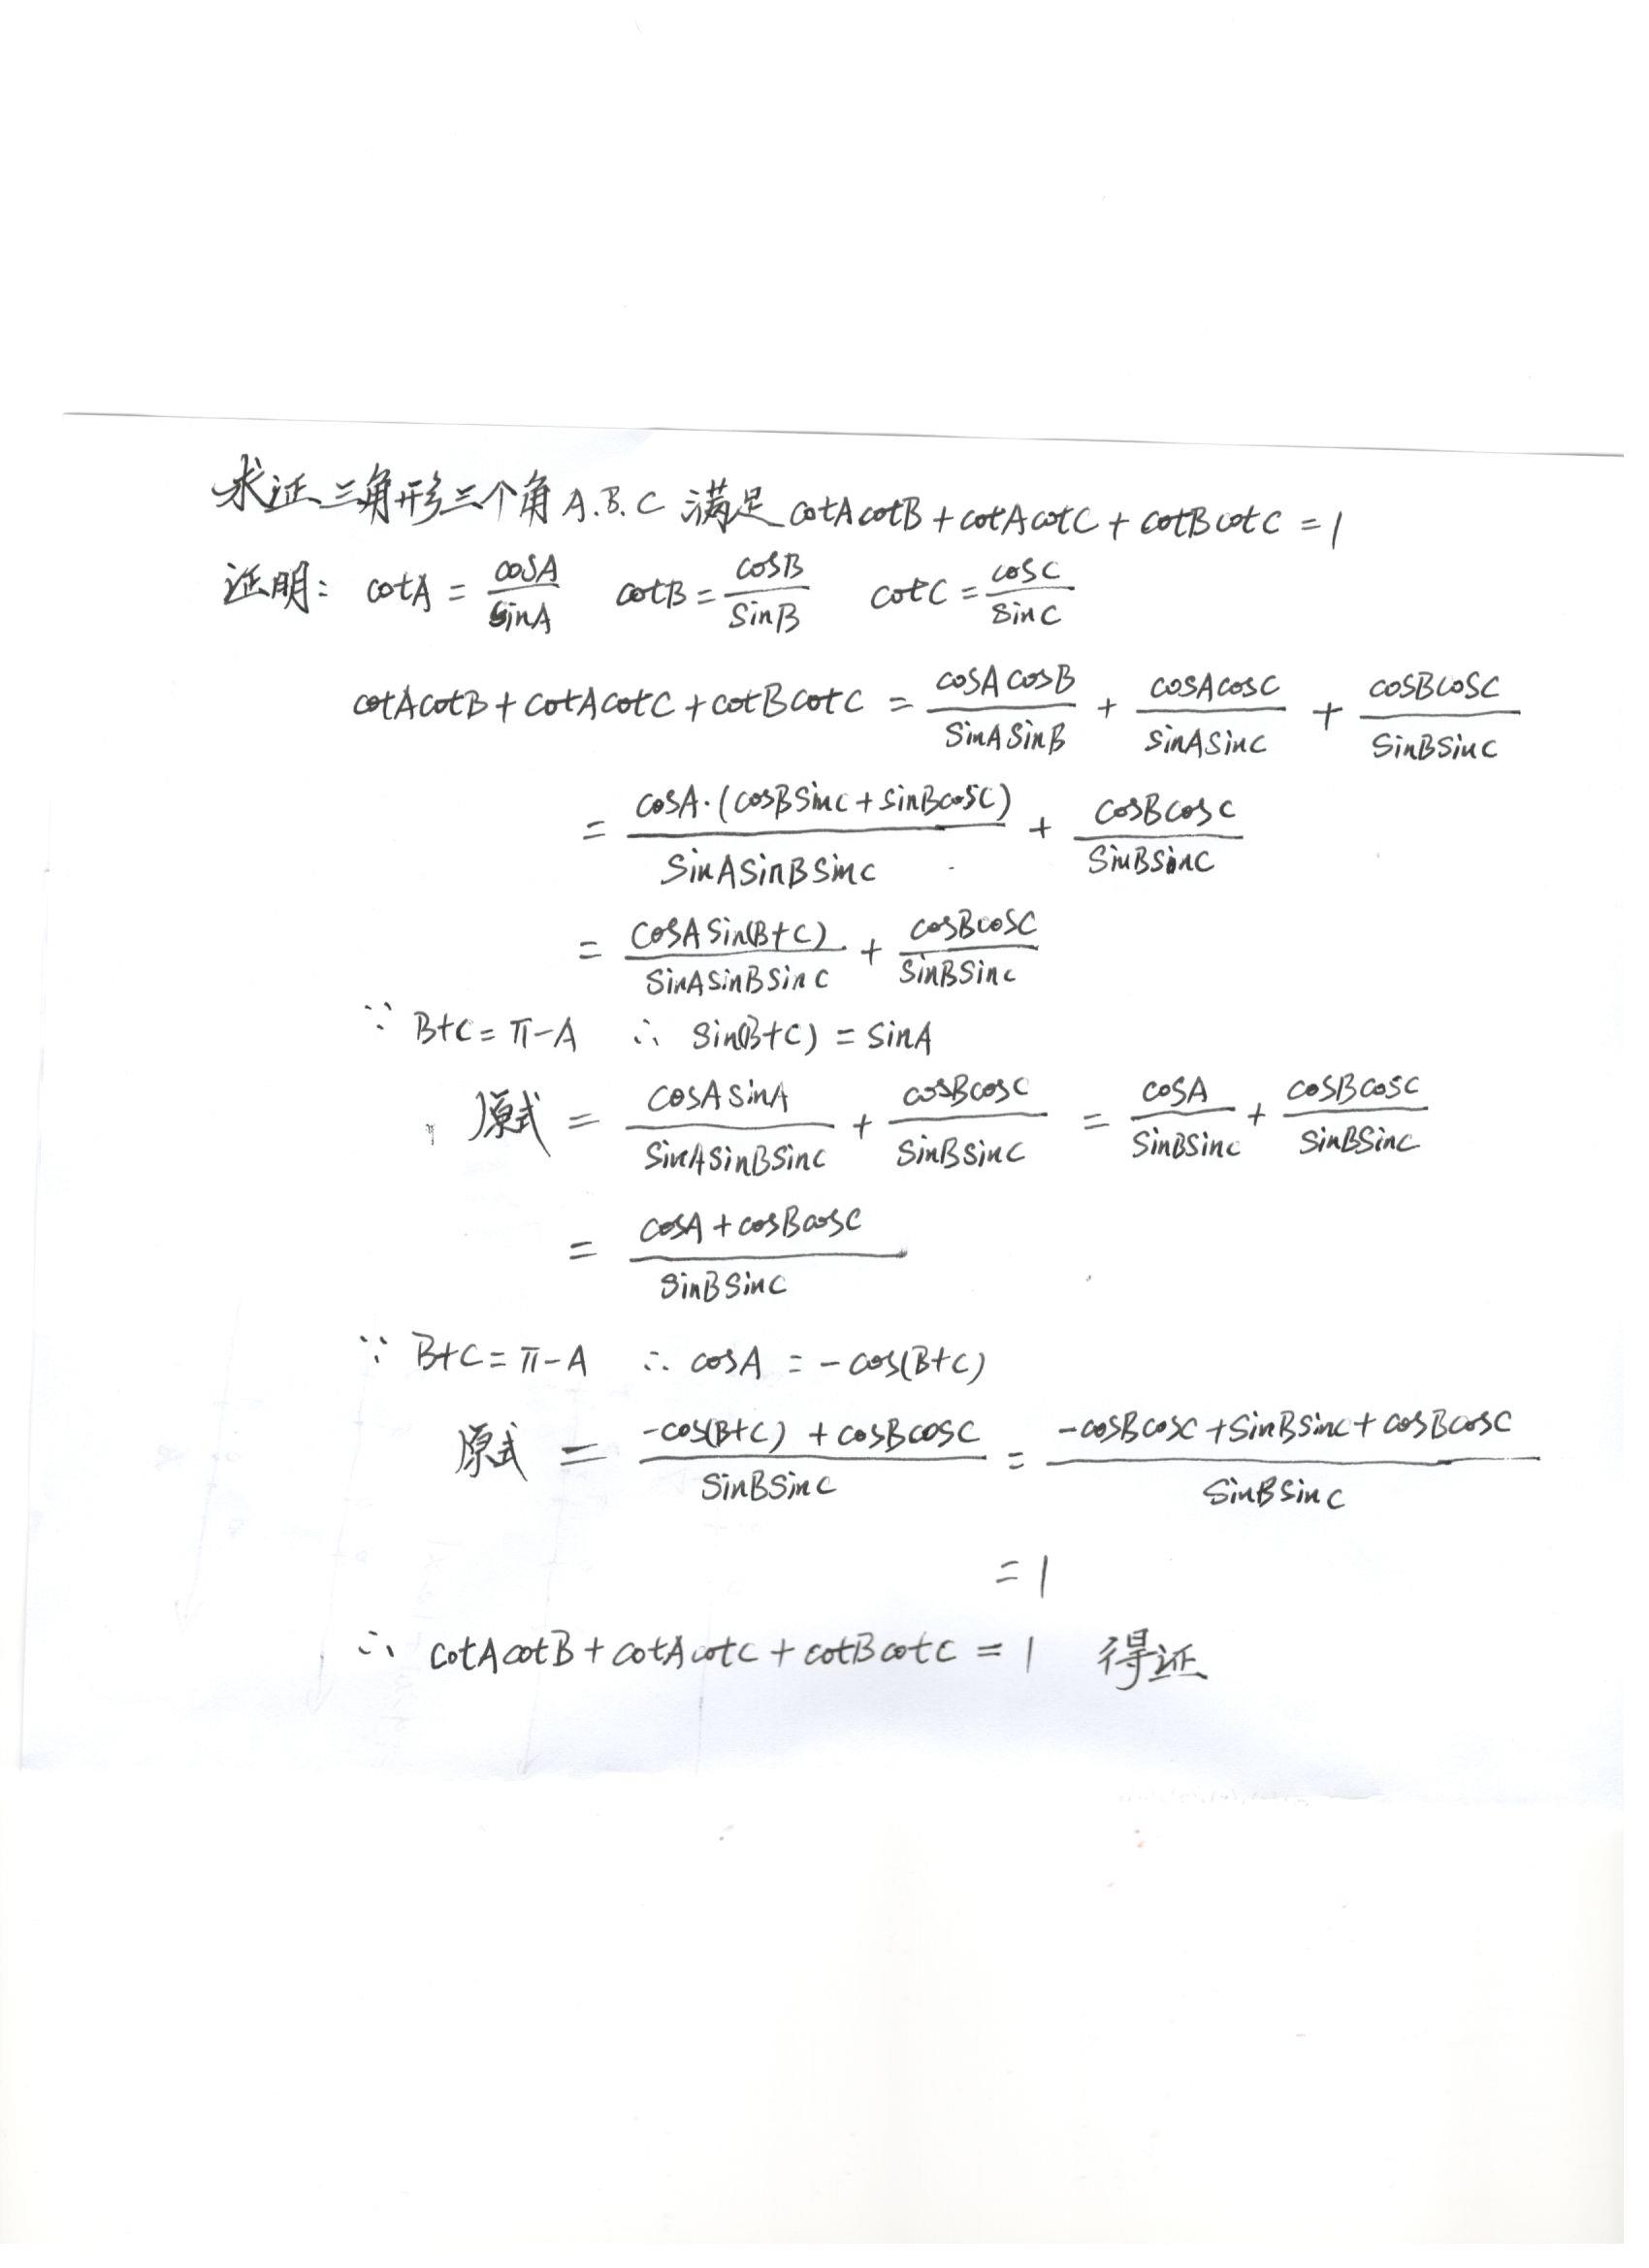 求证三角形三个角A.B.C 满足 cotAcotB+cotAcotC+cotBcotC=1
证明: cotA = cosA/sinA cotB = cosB/sinB cotC = cosC/sinC
cotAcotB+cotAcotC+cotBcotC = cosAcosB/sinAsinB + cosAcosC/sinAsinC + cosBcosC/sinBsinC
= cosA·(cosBsinC+sinBcosC)/sinAsinBsinC + cosBcosC/sinBsinC
= cosAsin(B+C)/sinAsinBsinC + cosBcosC/sinBsinC
∵ B+C=π-A ∴ sin(B+C)=sinA
原式 = cosAsinA/sinAsinBsinC + cosBcosC/sinBsinC = cosA/sinBsinC + cosBcosC/sinBsinC
= cosA+cosBcosC/sinBsinC
∵ B+C=π-A ∴ cosA = -cos(B+C)
原式 = -cos(B+C)+cosBcosC/sinBsinC = -cosBcosC+sinBsinC+cosBcosC/sinBsinC
=1
∴ cotAcotB+cotAcotC+cotBcotC=1 得证